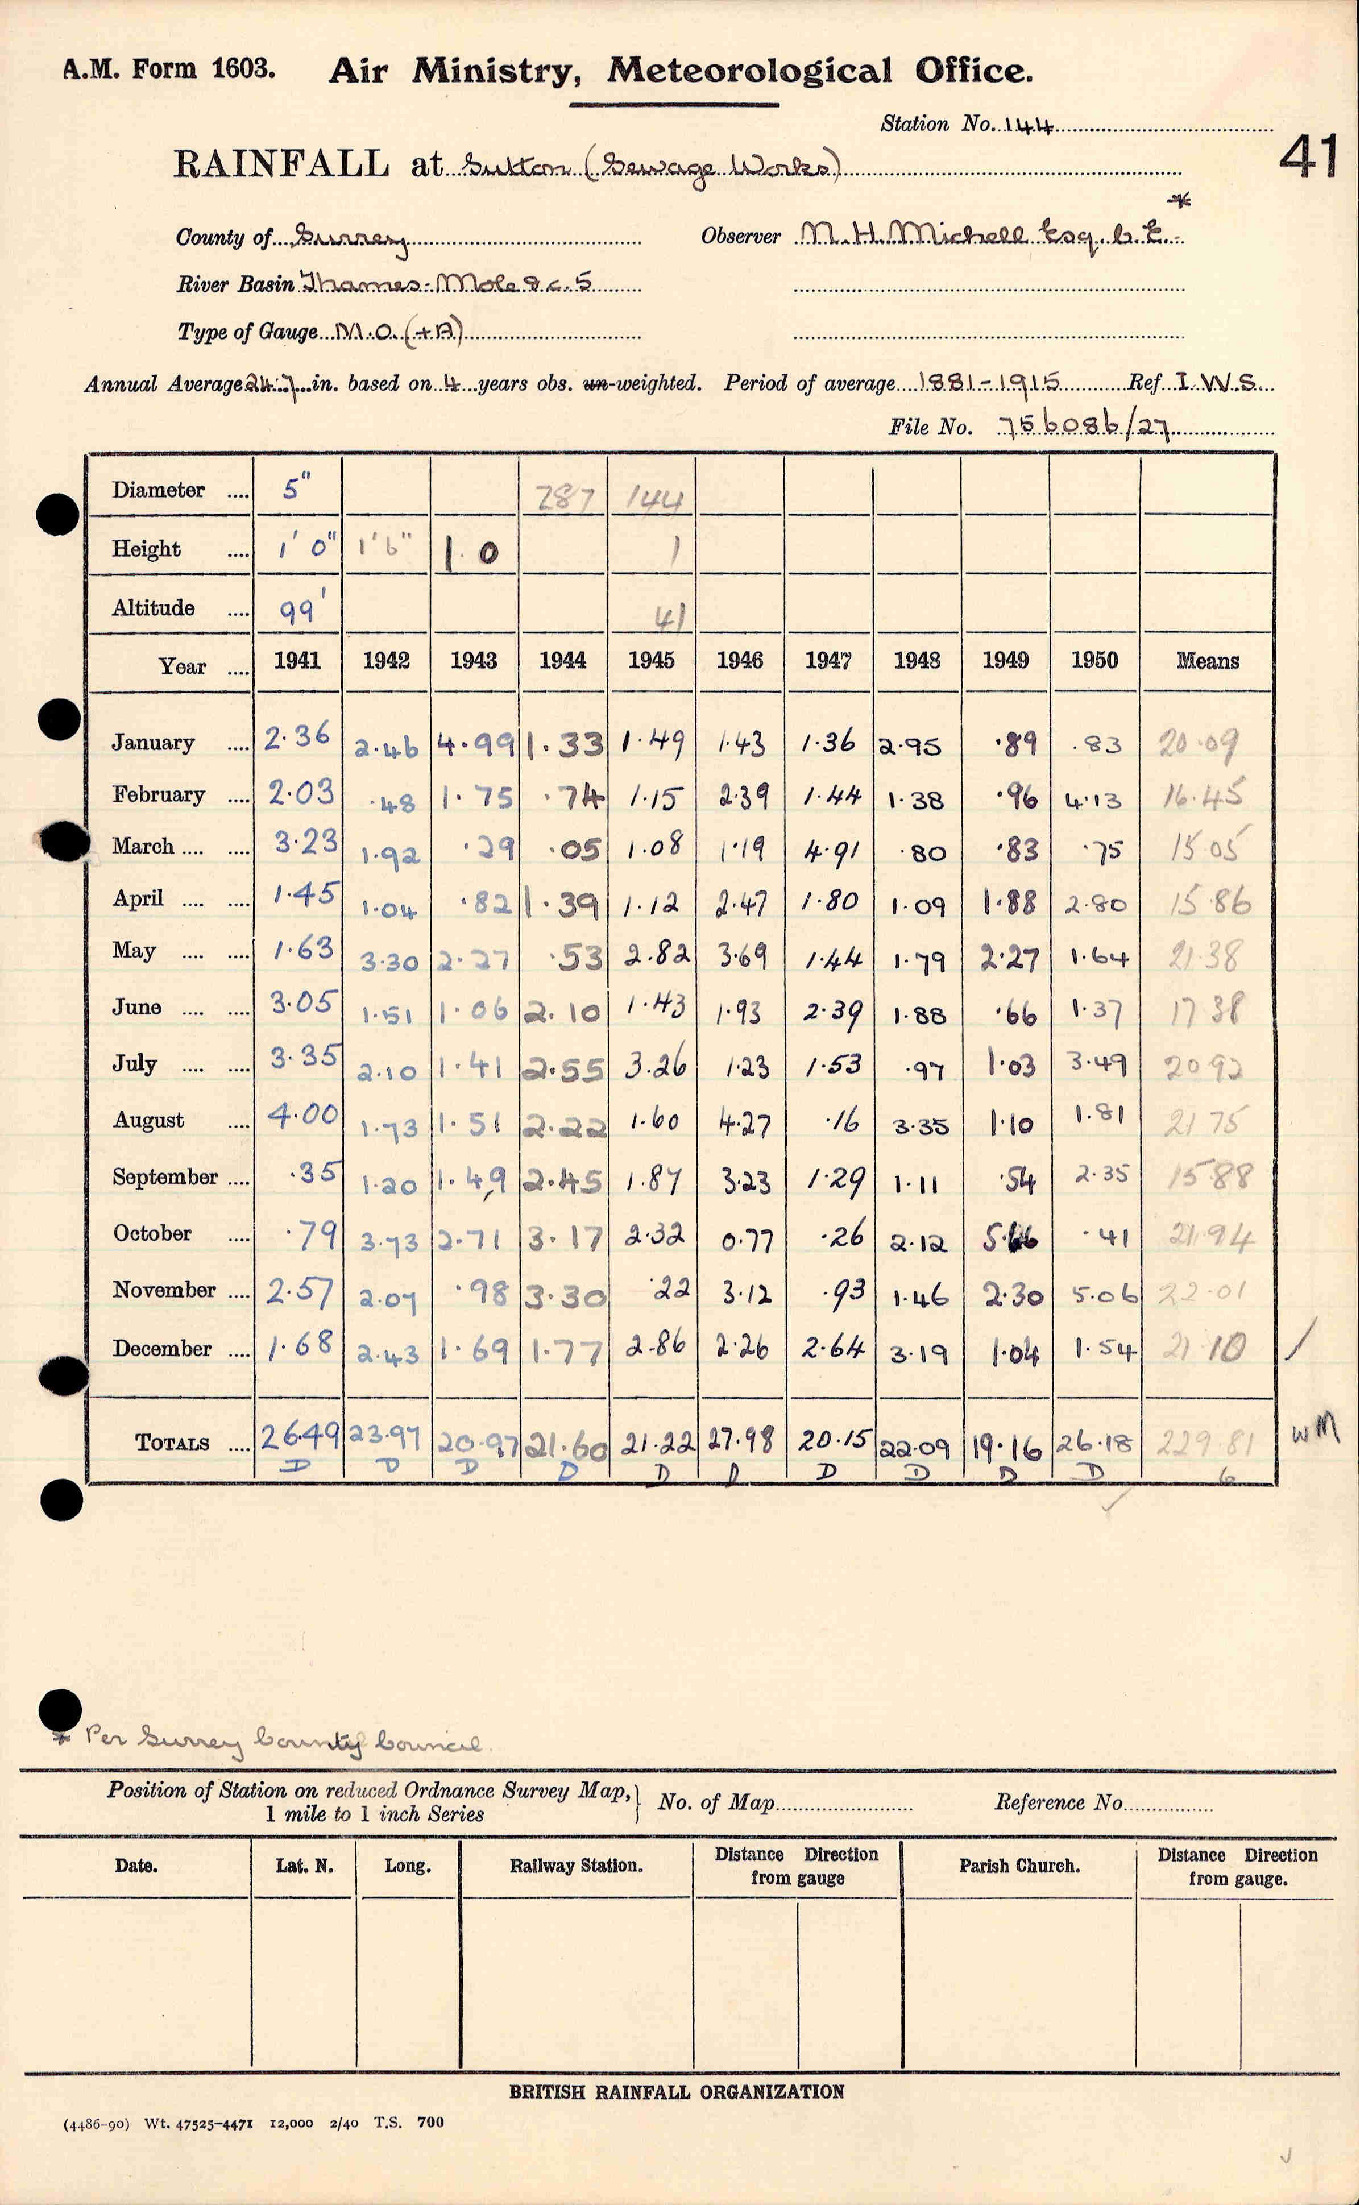 A.M. Form 1603. Air Ministry, Meteorological Office.
Station No. 144
41
RAINFALL at Sutton (Sewage Works)
County of Surrey Observer N.H. Michell Esq. C.E. *
River Basin Thames-Mole &c. 5
Type of Gauge M.O. (+A)
Annual Average 24.7 in. based on 4 years obs. un-weighted. Period of average 1881-1915 Ref. I.W.S.
File No. 756086/27
Diameter .... 5" 287 144
Height .... 1' 0" 1'6" 1.0 1
Altitude .... 99' 41
Year .... 1941 1942 1943 1944 1945 1946 1947 1948 1949 1950 Means
January .... 2.36 2.46 4.99 1.33 1.49 1.43 1.36 2.95 .89 .83 20.09
February .... 2.03 .48 1.75 .74 1.15 2.39 1.44 1.38 .96 4.13 16.45
March .... .... 3.23 1.92 .29 .05 1.08 1.19 4.91 .80 .83 .75 15.05
April .... .... 1.45 1.04 .82 1.39 1.12 2.47 1.80 1.09 1.88 2.80 15.86
May .... .... 1.63 3.30 2.27 .53 2.82 3.69 1.44 1.79 2.27 1.64 21.38
June .... .... 3.05 1.51 1.06 2.10 1.43 1.93 2.39 1.88 .66 1.37 17.38
July .... .... 3.35 2.10 1.41 2.55 3.26 1.23 1.53 .97 1.03 3.49 20.92
August .... 4.00 1.73 1.51 2.22 1.60 4.27 .16 3.35 1.10 1.81 21.75
September .... .35 1.20 1.49 2.45 1.87 3.23 1.29 1.11 .54 2.35 15.88
October .... .79 3.73 2.71 3.17 2.32 0.77 .26 2.12 5.66 .41 21.94
November .... 2.57 2.07 .98 3.30 .22 3.12 .93 1.46 2.30 5.06 22.01
December .... 1.68 2.43 1.69 1.77 2.86 2.26 2.64 3.19 1.04 1.54 21.10
TOTALS .... 26.49 23.97 20.97 21.60 21.22 27.98 20.15 22.09 19.16 26.18 229.81 WM
D D D D D D D D D D 6
* Per Surrey County Council.
Position of Station on reduced Ordnance Survey Map, No. of Map Reference No
1 mile to 1 inch Series
Date. Lat. N. Long. Railway Station. Distance from gauge Direction Parish Church. Distance Direction from gauge.
BRITISH RAINFALL ORGANIZATION
(4486-90) Wt. 47525-4471 12,000 2/40 T.S. 700